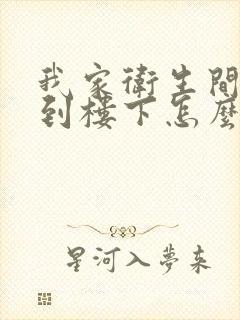 我家衛生間
到樓下怎麼
星河入夢来